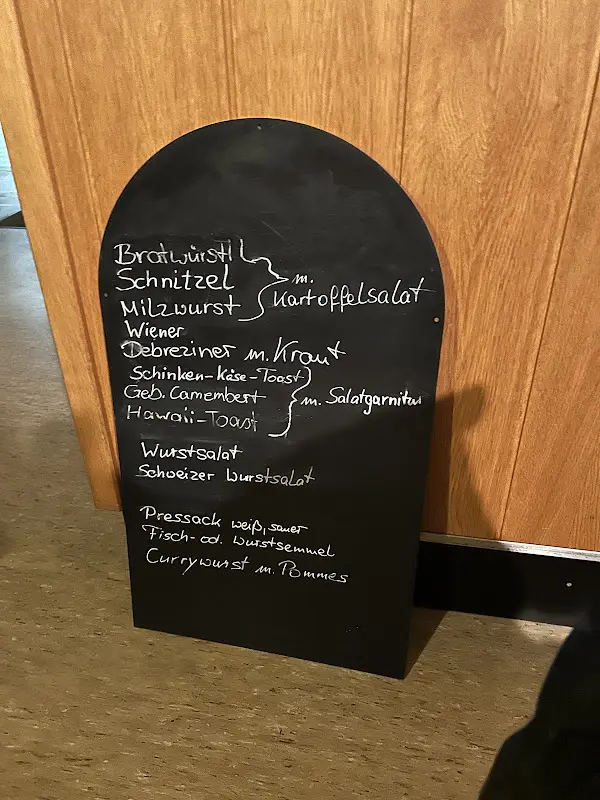 Bratwürstl
Schnitzel
Milzwurst
m. Kartoffelsalat
Wiener
Debreziner m. Kraut
Schinken-Käse-Toast
Geb. Camembert
Hawaii-Toast
m. Salatgarnitur
Wurstsalat
Schweizer Wurstsalat
Pressack weiß, sauer
Fisch- od. Wurstsemmel
Currywurst m. Pommes